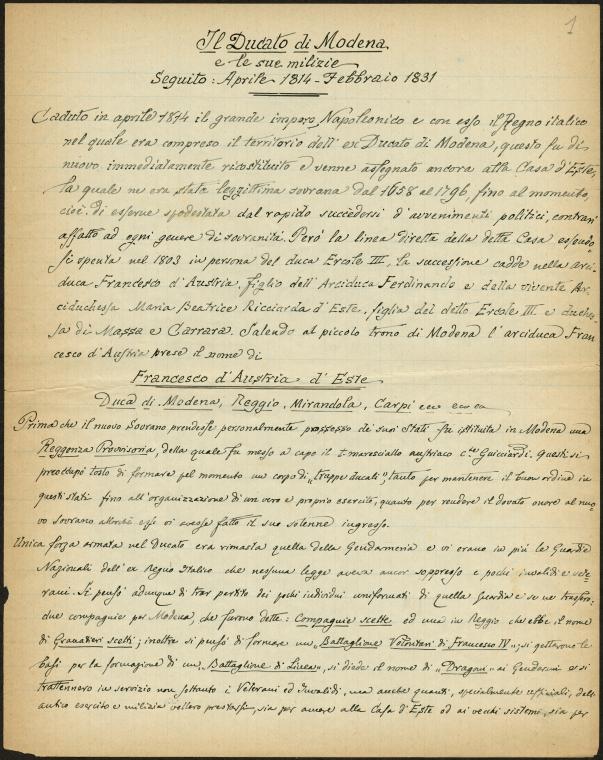 1
Il Ducato di Modena
e le sue milizie
Seguito: Aprile 1814 - Febbraio 1831
Caduto in aprile 1814 il grande impero Napoleonico e con esso il Regno italico
nel quale era compreso il territorio dell'ex Ducato di Modena, questo fu di
nuovo immediatamente ricostituito e venne assegnato ancora alla Casa d'Este,
la quale ne era stata leggittima sovrana dal 1658 al 1796, fino al momento,
cioè, di esserne spodestata dal rapido succedersi d'avvenimenti politici, contrari
affatto ad ogni genere di sovranità. Però la linea diretta della detta Casa essendo
si spenta nel 1803 in persona del duca Ercole III, la successione cadde nella arci
duca Francesco d'Austria, figlio dell'Arciduca Ferdinando e della vivente Ar
ciduchessa Maria Beatrice Ricciarda d'Este, figlia del detto Ercole III e duches
sa di Massa e Carrara. Salendo al piccolo trono di Modena l'arciduca Fran
cesco d'Austria prese il nome di
Francesco d'Austria d'Este
Duca di Modena, Reggio, Mirandola, Carpi ecc ecc ecc
Prima che il nuovo Sovrano prendesse personalmente possesso de' suoi Stati fu istituita in Modena una
Reggenza Provvisoria, della quale fu messo a capo il t. maresciallo austriaco cte Guicciardi. Questi si
preoccupò tosto di formare pel momento un corpo di "truppe ducali", tanto per mantenere il buon ordine in
questi stati fino all'organizzazione di un vero e proprio esercito, quanto per rendere il dovuto onore al nuo
vo sovrano allorchè egli vi avesse fatto il suo solenne ingresso.
Unica forza armata nel Ducato era rimasta quella della Gendarmeria e vi erano in più le Guardie
Nazionali dell'ex Regno Italico che nessuna legge aveva ancor soppresso e pochi invalidi e vete
rani. Si pensò adunque di trar partito dei pochi individui uniformati di quella Guardia e se ne trassero
due compagnie per Modena, che furono dette: Compagnie scelte ed una in Reggio che ebbe il nome
di Granatieri scelti; inoltre si pensò di formare un "Battaglione Volontari di Francesco IV"; si gettarono le
basi per la formazione di un "Battaglione di Linea", si diede il nome di "Dragoni" ai Gendarmi e si
trattennero in servizio non soltanto i Veterani ed Invalidi, ma anche quanti, specialmente ufficiali, dell'
antico esercito e milizia vollero prestarsi, sia per amore alla Casa d'Este od ai vecchi sistemi, sia per